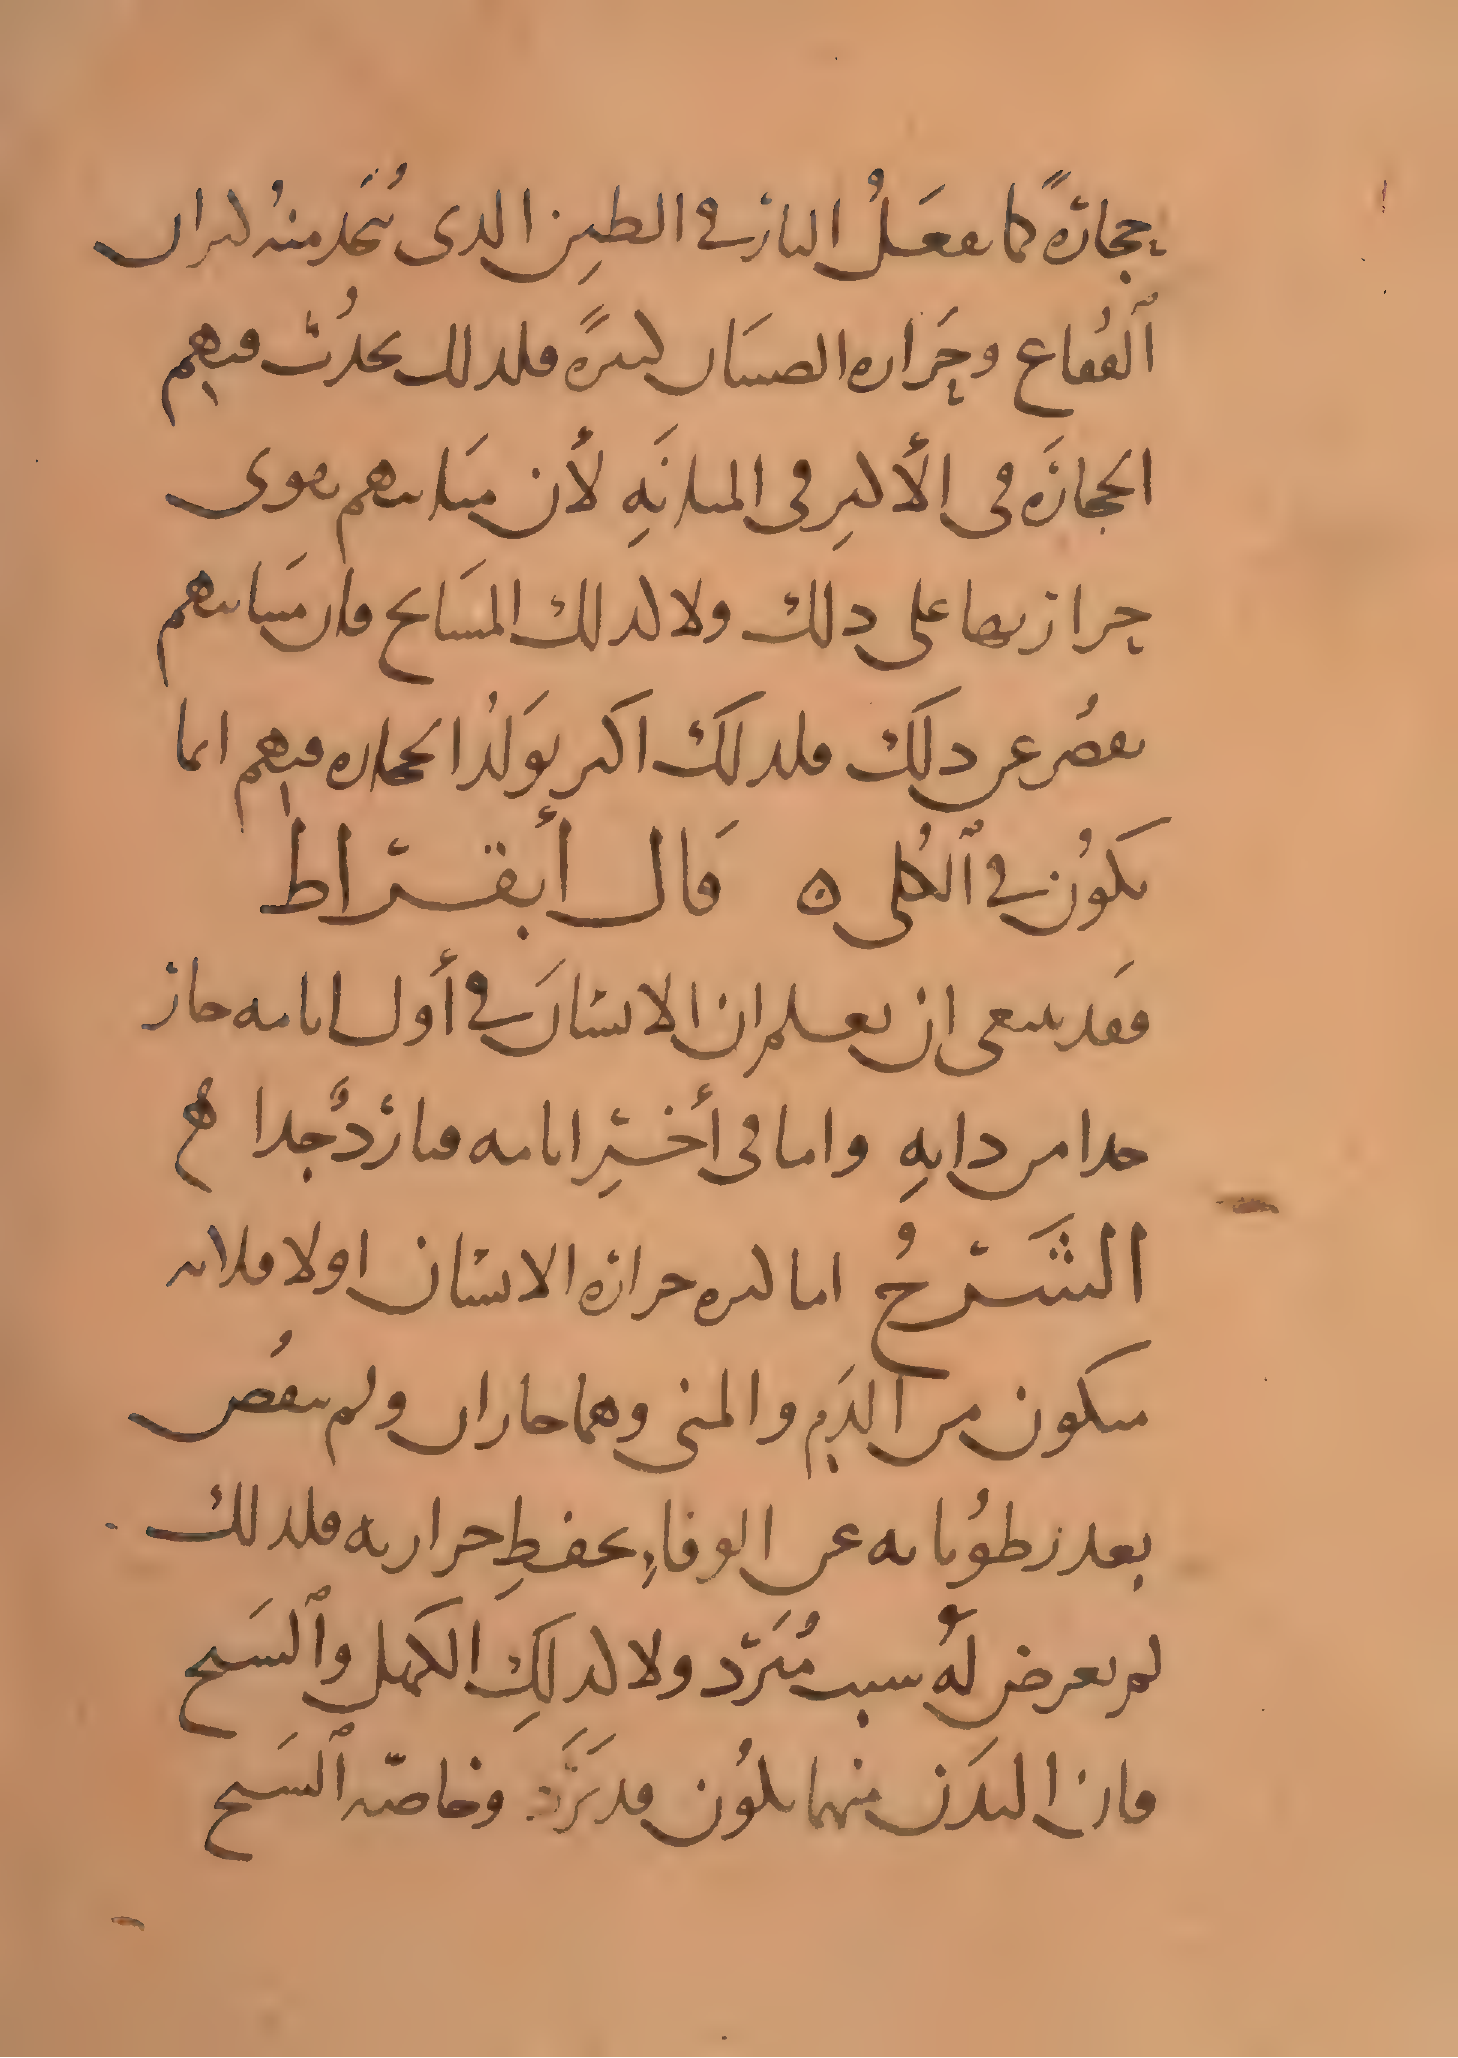 حجارةً كما يفعَلُ النار في الطين الذي يُتّخذ منهُ كيزان
ٱلفُقاع وحَرارة الصبيَان كثيرةً فلذلك يحدُث فيهم
الحجارَة في الأكثرِ في المثانَهِ لأن مثَانتهم تقوى
حرارتها على ذلك ولا كذلك المشَايخ فان مثَانتهم
تقصُر عن ذلكَ فلذلكَ اكثر تَولُد الحجارة فيهم انما
يكوُن في ٱلكُلى ه قَال أبقراط
فقَد ينبغي ان تعلم ان الانسَانَ في أول ايامه حار
جدا من ذاتهِ واما في أخرِ ايامه فبارِدٌ جدا
الشَرحُ اما كثرة حرارة الانسان اولا فلانه
يتكون من الدَمِ والمني وهما حاران ولم تنقُص
بعد رطوُباته عن الوفاءِ بحفظِ حرارته فلذلك
لم يعرض لهُ سبب مُبَرّد ولا كذلكِ الكَهل وٱلشَيخ
فان البدَن منهما يكوُن قد بَرَدَ وخاصّه ٱلشَيخ